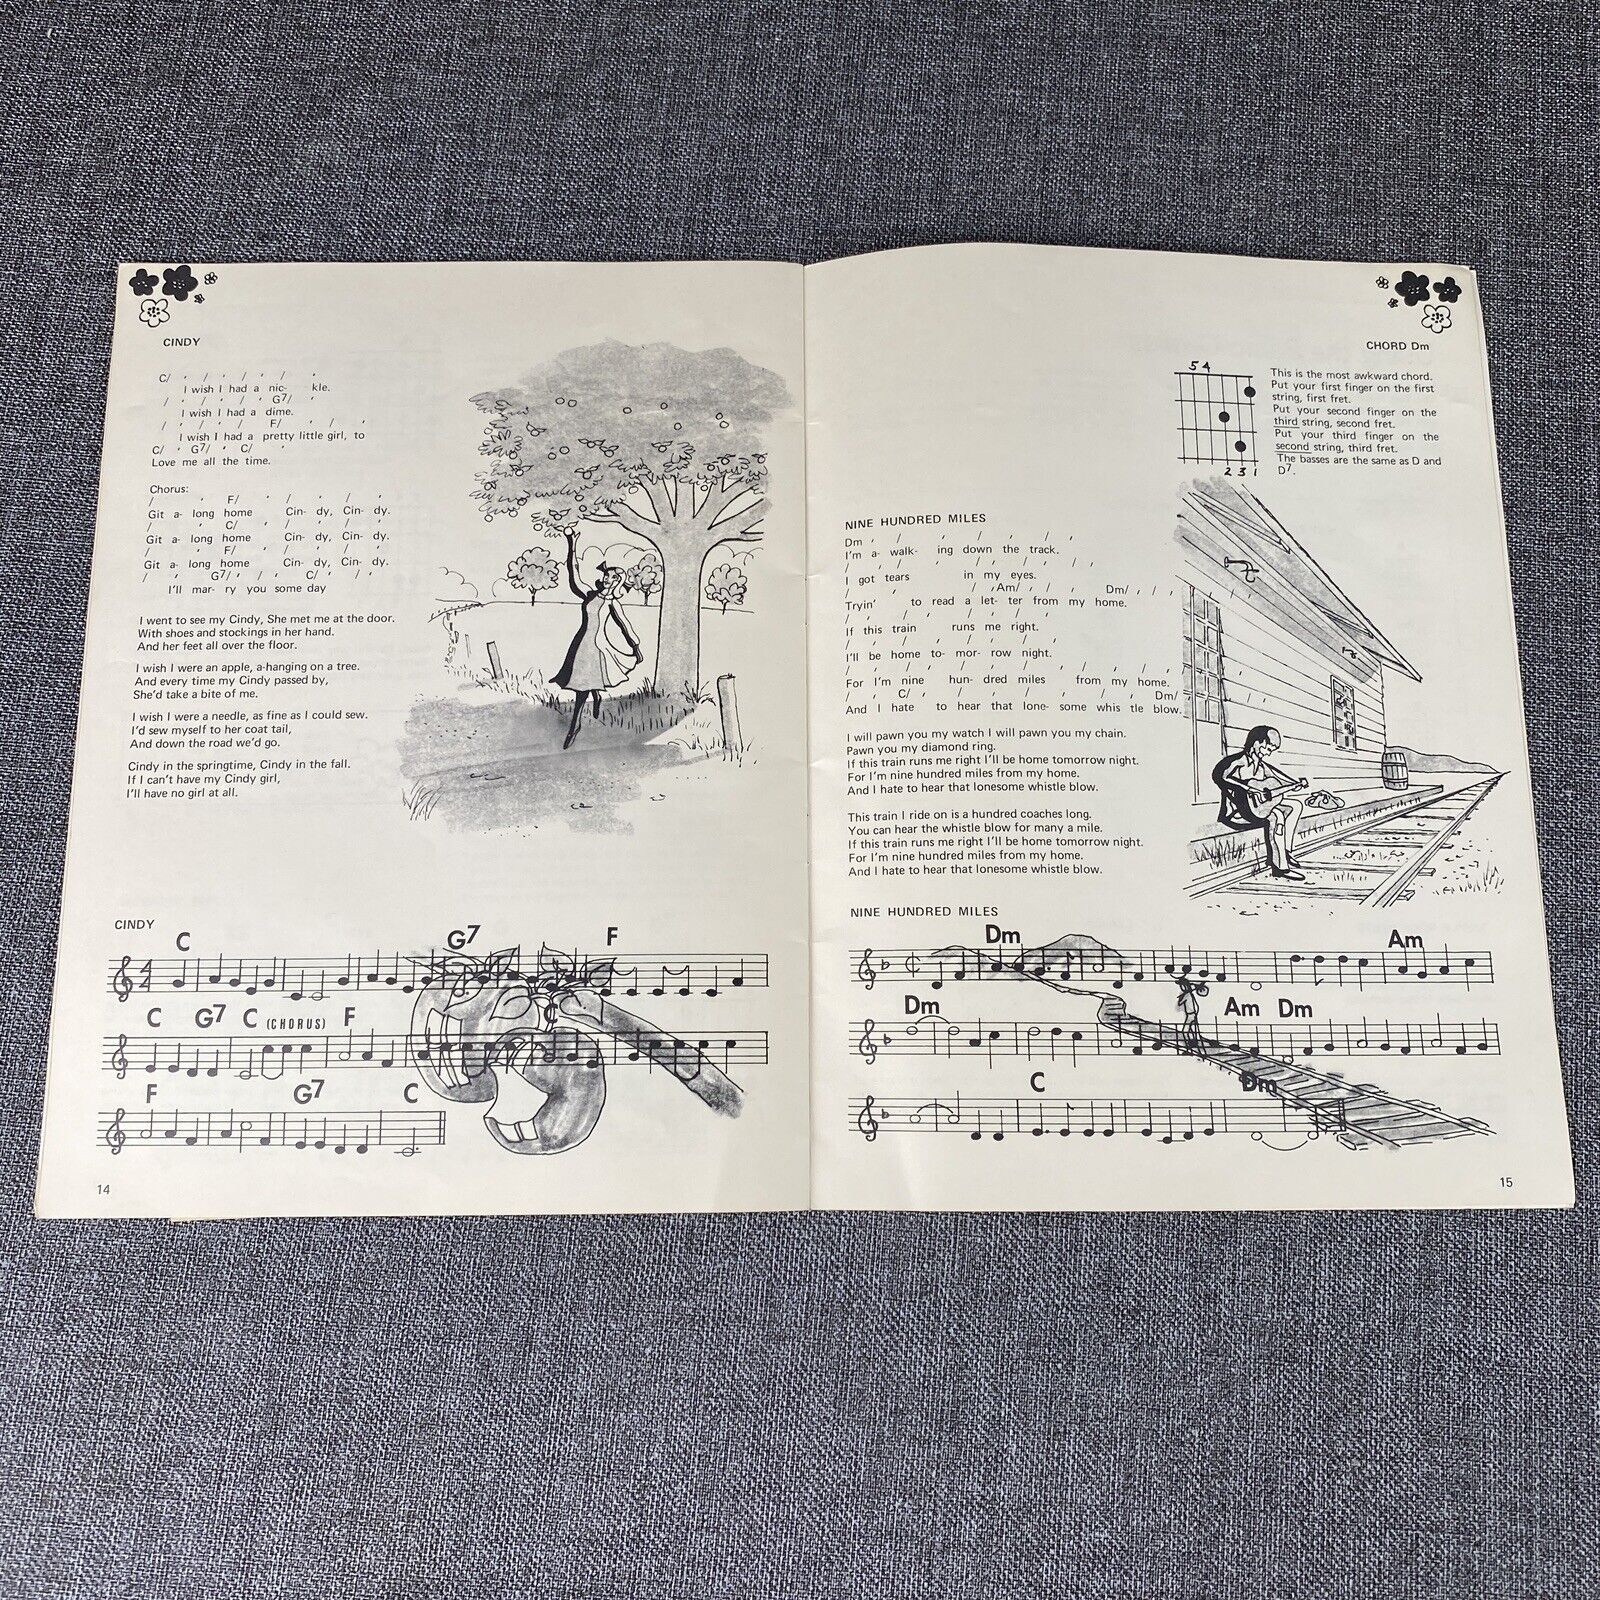 CINDY
C/ ' / ' / ' / '
I wish I had a nic- kle.
/ ' / ' / ' G7/ '
I wish I had a dime.
/ ' / ' / ' F/ ' / '
I wish I had a pretty little girl, to
C/ ' G7/ ' C/ ' /
Love me all the time.
Chorus:
/ ' F/ ' / ' / '
Git a- long home Cin- dy, Cin- dy.
/ ' C/ ' / ' / '
Git a- long home Cin- dy, Cin- dy.
/ ' F/ ' / ' / '
Git a- long home Cin- dy, Cin- dy.
/ ' G7/ ' / ' C/ ' / '
I'll mar- ry you some day
I went to see my Cindy, She met me at the door.
With shoes and stockings in her hand.
And her feet all over the floor.
I wish I were an apple, a-hanging on a tree.
And every time my Cindy passed by,
She'd take a bite of me.
I wish I were a needle, as fine as I could sew.
I'd sew myself to her coat tail,
And down the road we'd go.
Cindy in the springtime, Cindy in the fall.
If I can't have my Cindy girl,
I'll have no girl at all.
CINDY
C G7 F
4
4
C G7 C (CHORUS) F C
F G7 C
14
CHORD Dm
5 4
2 3 1
This is the most awkward chord.
Put your first finger on the first
string, first fret.
Put your second finger on the
third string, second fret.
Put your third finger on the
second string, third fret.
The basses are the same as D and
D7.
NINE HUNDRED MILES
Dm ' / ' / ' / '
I'm a- walk- ing down the track.
/ ' / ' / ' / ' /
I got tears in my eyes.
/ ' / ' Am/ ' / ' Dm/ ' / '
Tryin' to read a let- ter from my home.
/ ' / ' / ' / '
If this train runs me right.
/ ' / ' / ' / '
I'll be home to- mor- row night.
/ ' / ' / ' / ' / ' / '
For I'm nine hun- dred miles from my home.
/ ' C/ ' / ' / ' / ' Dm/ '
And I hate to hear that lone- some whis tle blow.
I will pawn you my watch I will pawn you my chain.
Pawn you my diamond ring.
If this train runs me right I'll be home tomorrow night.
For I'm nine hundred miles from my home.
And I hate to hear that lonesome whistle blow.
This train I ride on is a hundred coaches long.
You can hear the whistle blow for many a mile.
If this train runs me right I'll be home tomorrow night.
For I'm nine hundred miles from my home.
And I hate to hear that lonesome whistle blow.
NINE HUNDRED MILES
Dm Am
Dm Am Dm
C Dm
15